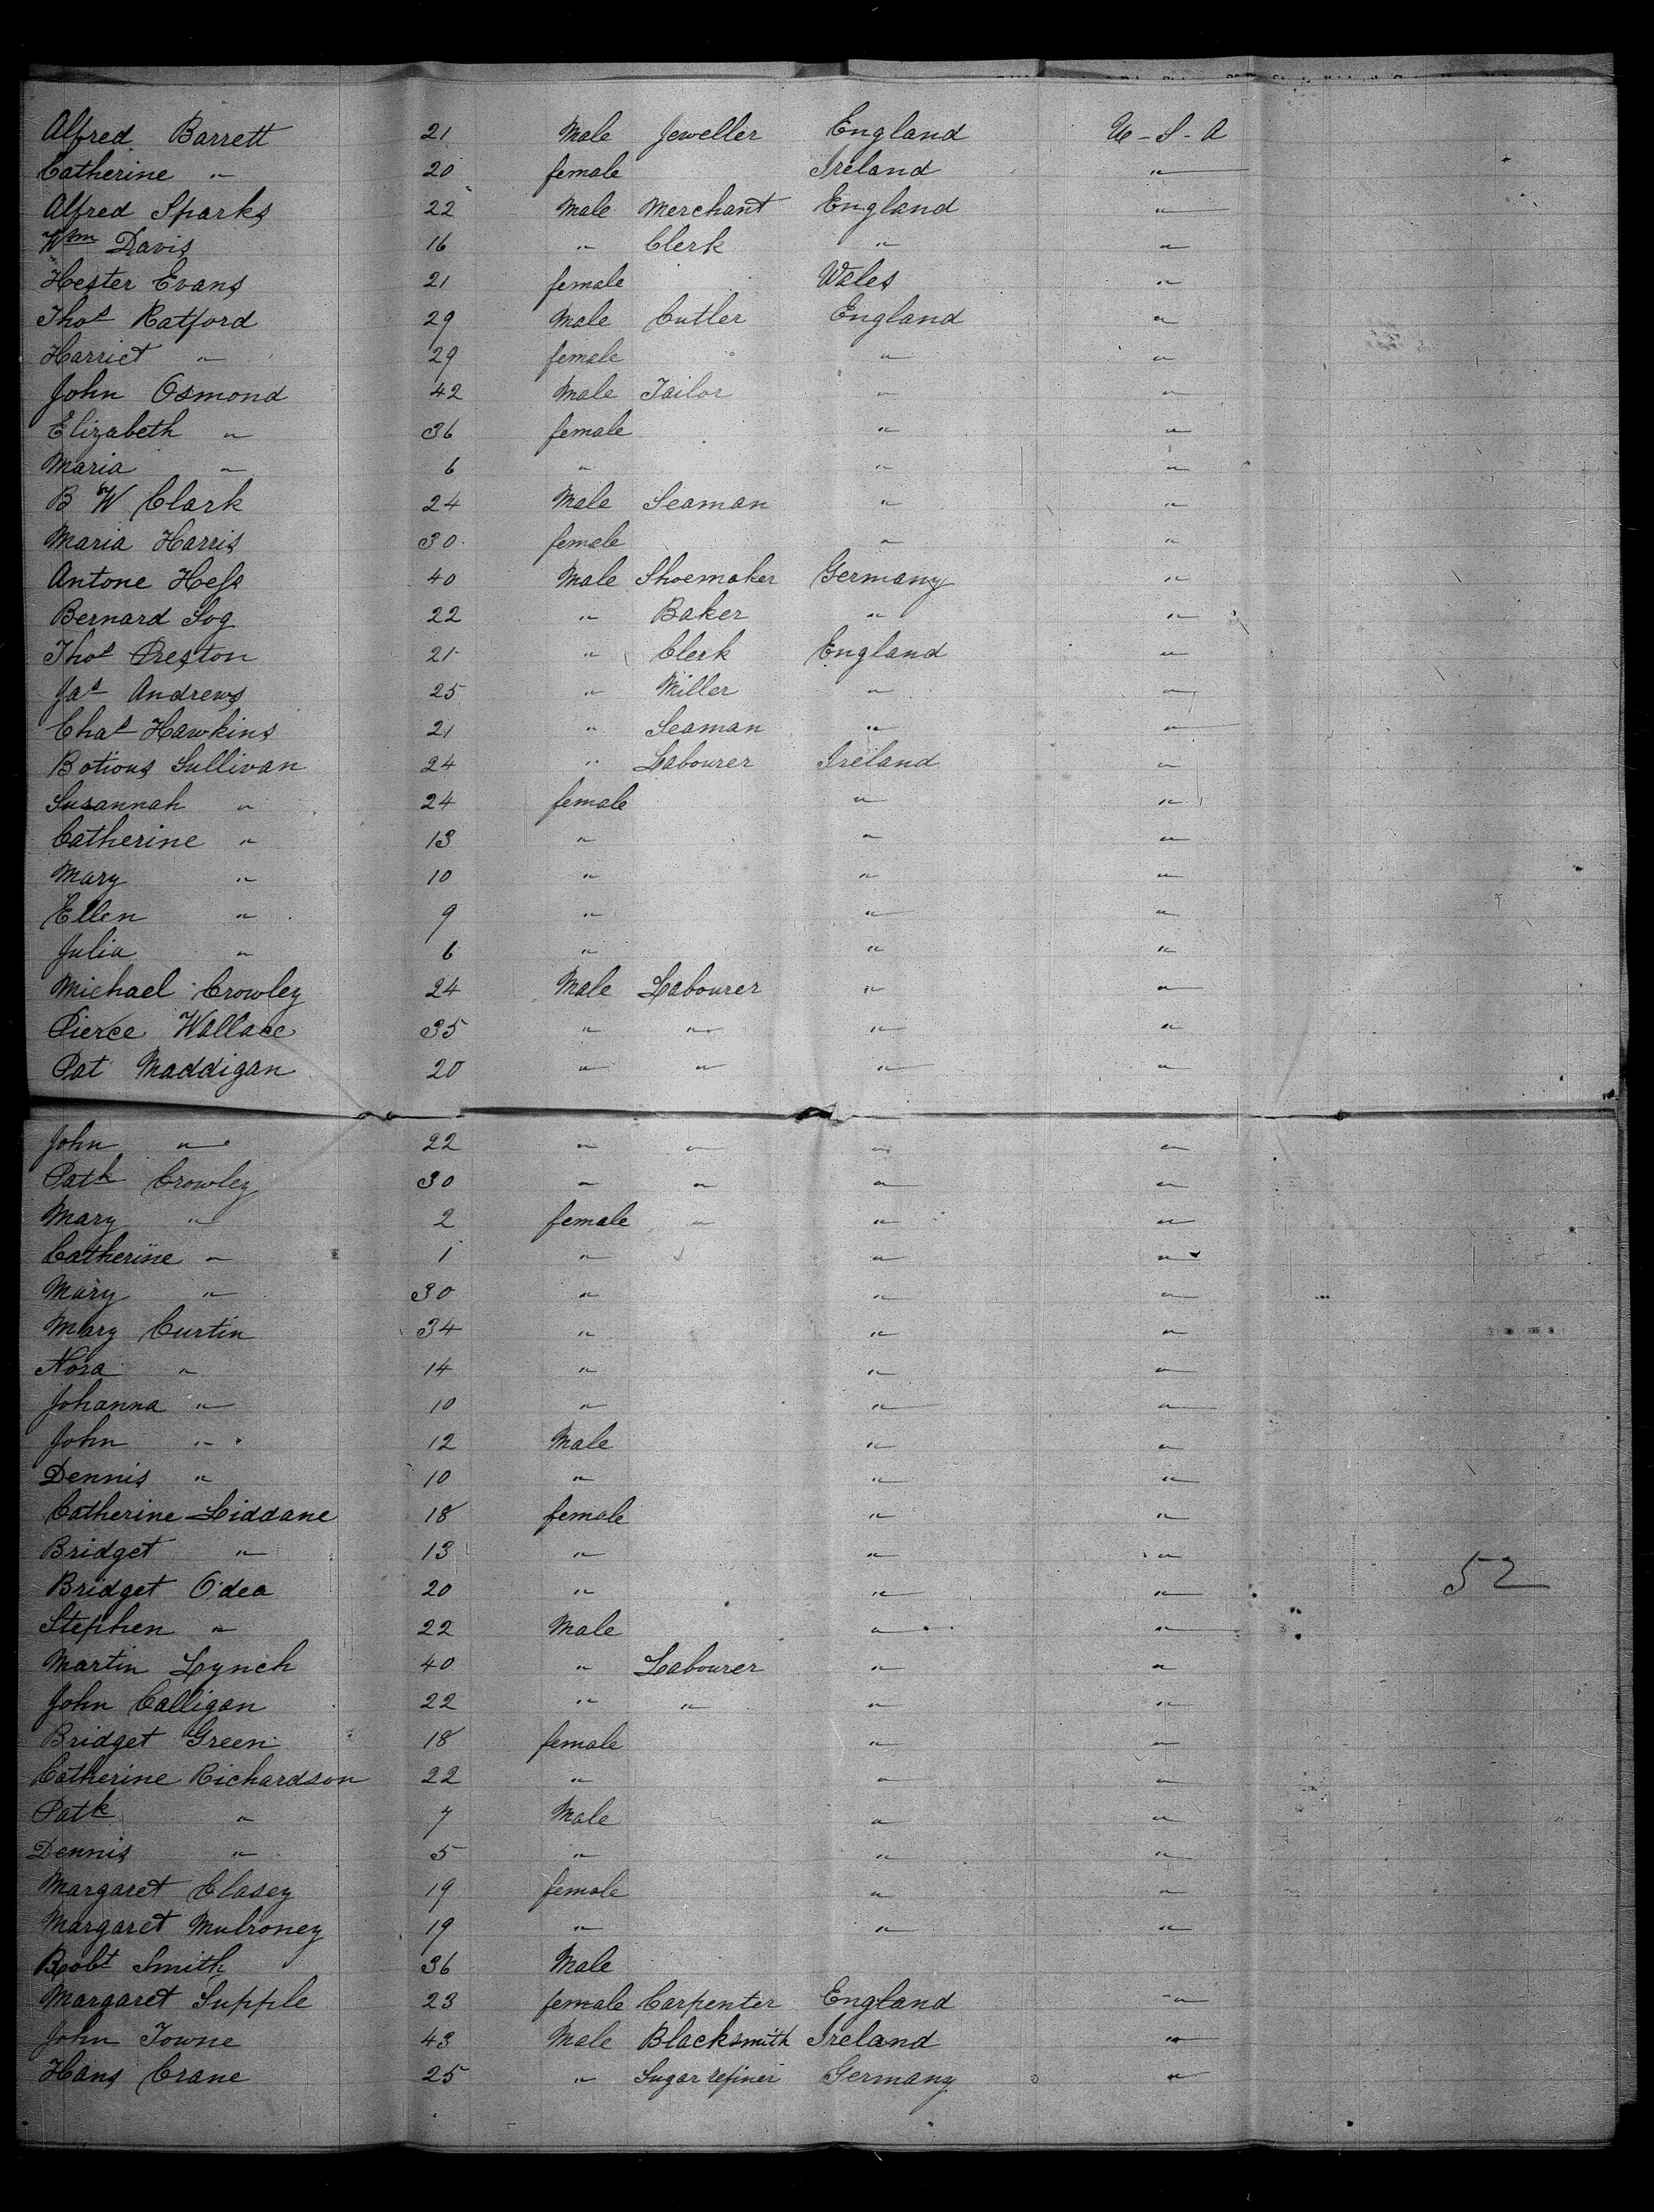 Alfred Barrett 21 Male Jeweller England U-S-A
Catherine " 20 female Ireland "
Alfred Sparks 22 Male Merchant England "
Wm Davis 16 " Clerk " "
Hester Evans 21 female Wales "
Thos Ratford 29 Male Cutler England "
Harriet " 29 female " "
John Osmond 42 Male Tailor " "
Elizabeth " 36 female " "
Maria " 6 " " "
B W Clark 24 Male Seaman " "
Maria Harris 30 female " "
Antone Hess 40 Male Shoemaker Germany "
Bernard Sog 22 " Baker " "
Thos Preston 21 " Clerk England "
Jas Andrews 25 " Miller " "
Chas Hawkins 21 " Seaman " "
Botious Sullivan 24 " Labourer Ireland "
Susannah " 24 female " "
Catherine " 13 " " "
Mary " 10 " " "
Ellen " 9 " " "
Julia " 6 " " "
Michael Crowley 24 Male Labourer " "
Pierce Wallace 35 " " " "
Pat Maddigan 20 " " " "
John " 22 " " " "
Patk Crowley 30 " " " "
Mary " 2 female " " "
Catherine " 1 " " "
Mary " 30 " " "
Mary Curtin 34 " " "
Nora " 14 " " "
Johanna " 10 " " "
John " 12 Male " "
Dennis " 10 " " "
Catherine Liddane 18 female " "
Bridget " 13 " " "
Bridget O'dea 20 " " " 52
Stephen " 22 Male " "
Martin Lynch 40 " Labourer " "
John Calligan 22 " " " "
Bridget Green 18 female " "
Catherine Richardson 22 " " "
Patk " 7 Male " "
Dennis " 5 " " "
Margaret Clasey 19 female " "
Margaret Mulroney 19 " " "
Robt Smith 36 Male
Margaret Supple 23 female Carpenter England "
John Towne 43 Male Blacksmith Ireland "
Hans Crane 25 " Sugar refiner Germany "